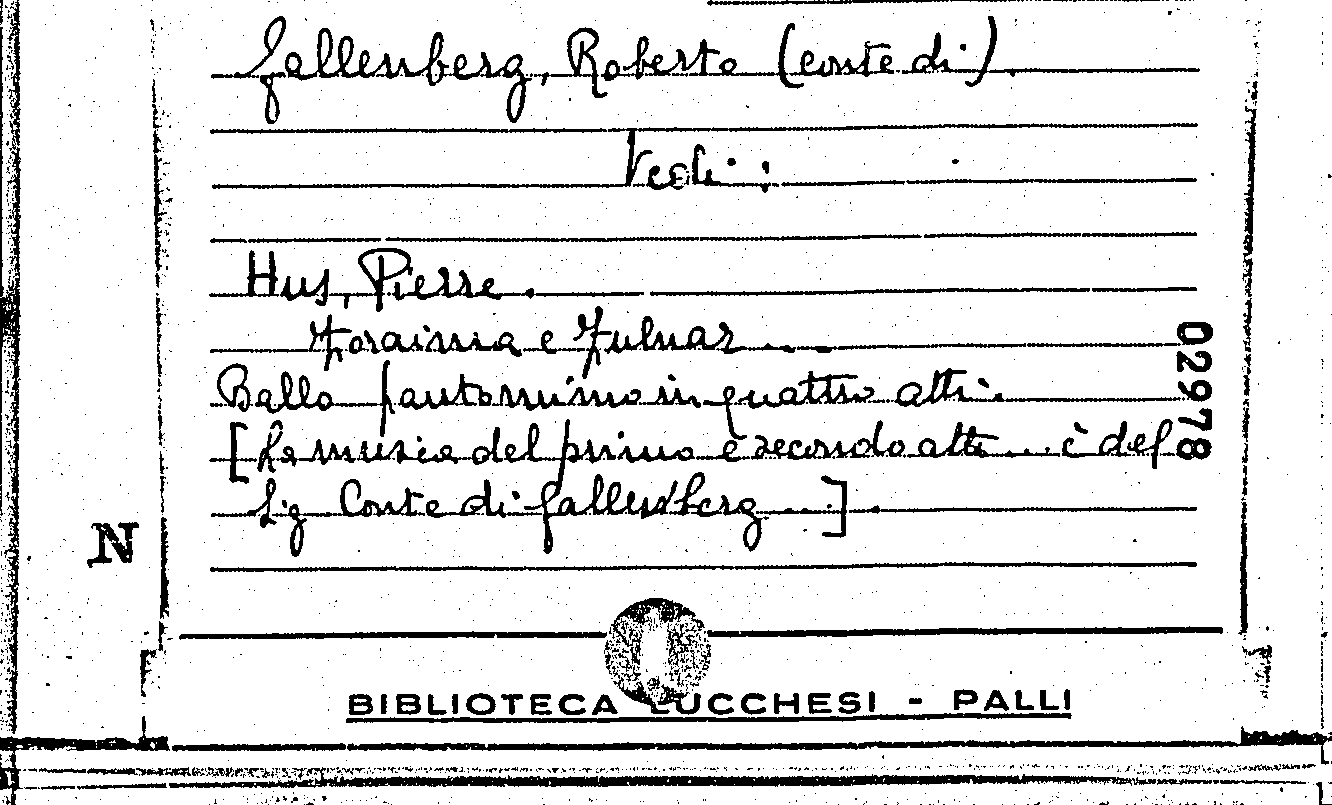 Gallenberg, Roberto (conte di).
Vedi:
Hus, Pierre.
Zoraima e Zulnar ....
Ballo pantomimo in quattro atti.
[La musica del primo e secondo atto ... è del
Sig Conte di Gallenberg ...].
02978
N
BIBLIOTECA LUCCHESI - PALLI